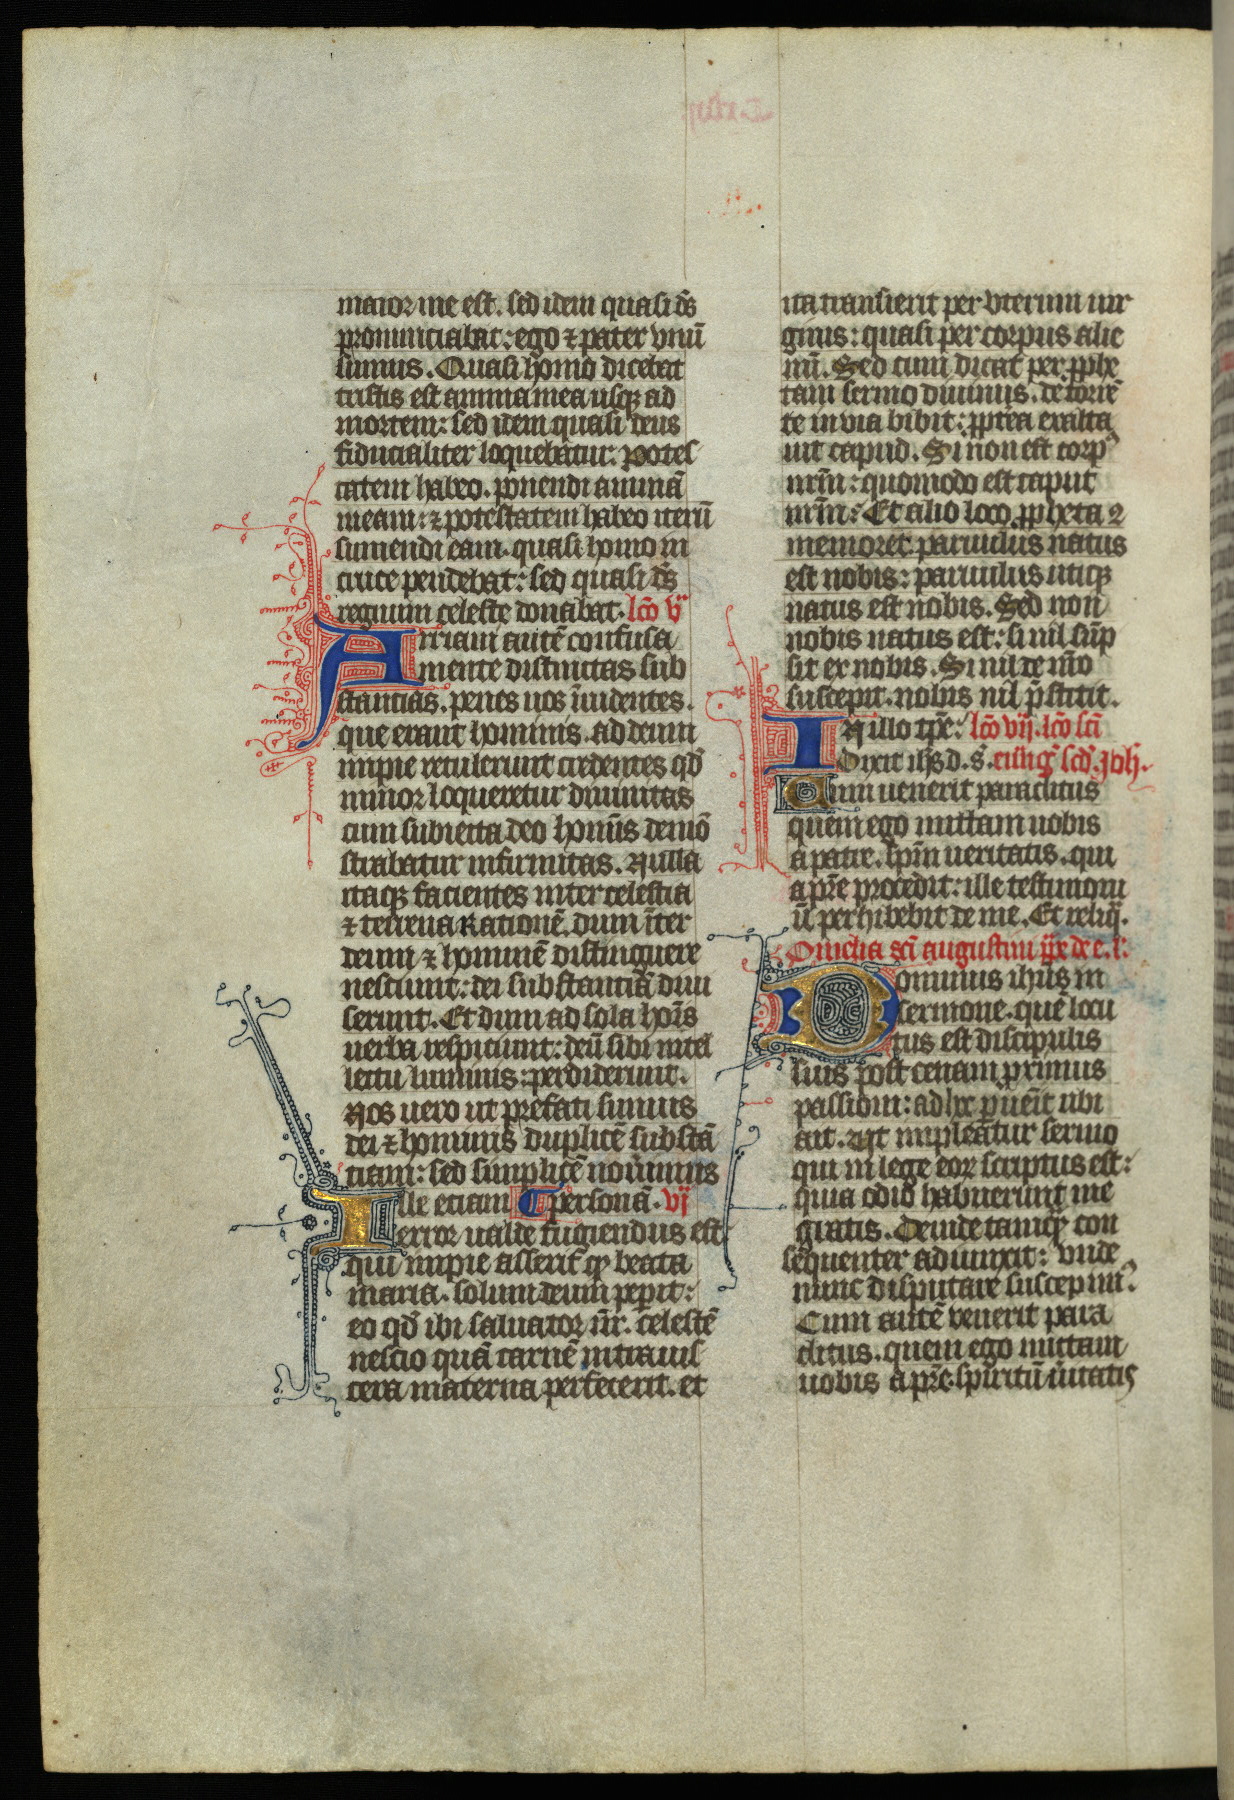 maior me est. sed idem quasi ds̄
pronunciabat: ego ⁊ pater vnū
sumus. Quasi homo dicebat
tristis est anima mea usqꝫ ad
mortem: sed idem quasi deus
fiducialiter loquebatur: potes
tatem habeo. ponendi animā
meam: ⁊ potestatem habeo iterū
sumendi eam. quasi homo in
cruce pendebat: sed quasi ds̄
regnum celeste donabat. lc̄o v
Arriani autē confusa
mente distinctas sub
stantias. penes nos īuidentes.
que erant hominis. ad deum
impie retulerunt credentes qd̄
minor loqueretur diuinitas
cum subiecta deo hoīnis demō
strabatur infirmitas. Nulla
itaqꝫ facientes inter celestia
⁊ terrena Rationē. dum īter
deum ⁊ hominē distinguere
nesciunt: dei substantiā diui
serunt. Et dum ad sola hoīs
uerba respiciunt: deū sibi intel
lectu luminis: perdiderunt.
Nos uero ut prefati sumus
dei ⁊ hominis duplicē substā
tiam: sed simplicē nouimus
Ille etiam ₵ personā. vj
error ualde fugiendus est
qui impie asserit qꝫ beata
maria. solum deum peperit:
eo qd̄ ibi saluator nr̄. celestē
nescio quā carnē intra uis
cera materna perfecerit. et
ita transierit per vterum uir
ginis: quasi per corpus alie
nū. Sed cum dicat per ꝓphe
tam sermo diuinus. de torrē
te in via bibit: ꝓpterea exalta
uit capud. Si non est corpꝰ
nrm̄: quomodo est caput
nrm̄: Et alio loco ꝓpheta 2
memoret. paruulus natus
est nobis: paruulus utiqꝫ
natus est nobis. Sed non
nobis natus est: si nil sūp
sit ex nobis. Si nil de nr̄o
suscepit. nobis nil p̄stitit.
In illo tp̄e: lc̄o vij. lc̄o sc̄i
Dixit ih̄s d. s. euāḡ scd̄. Joh̄.
Cum uenerit paraclitus
quem ego mittam uobis
a patre. spm̄ ueritatis. qui
a pr̄e procedit: ille testimoni
ū perhibebit de me. Et reliq̄.
Omelia sc̄i augustini
Dominus ihūs in
sermone. quē locu
tus est discipulis
suis post cenam proximus
passioni: ad hec puēit ubi
ait. Ut impleatur sermo
qui in lege eoꝝ scriptus est:
quia odio habuerunt me
gratis. Deinde tamqꝫ con
sequenter adiunxit: vnde
nunc disputare suscepimꝰ.
Cum autē venerit para
clitus. quem ego mittam
uobis a pr̄e. spiritū ūitatis